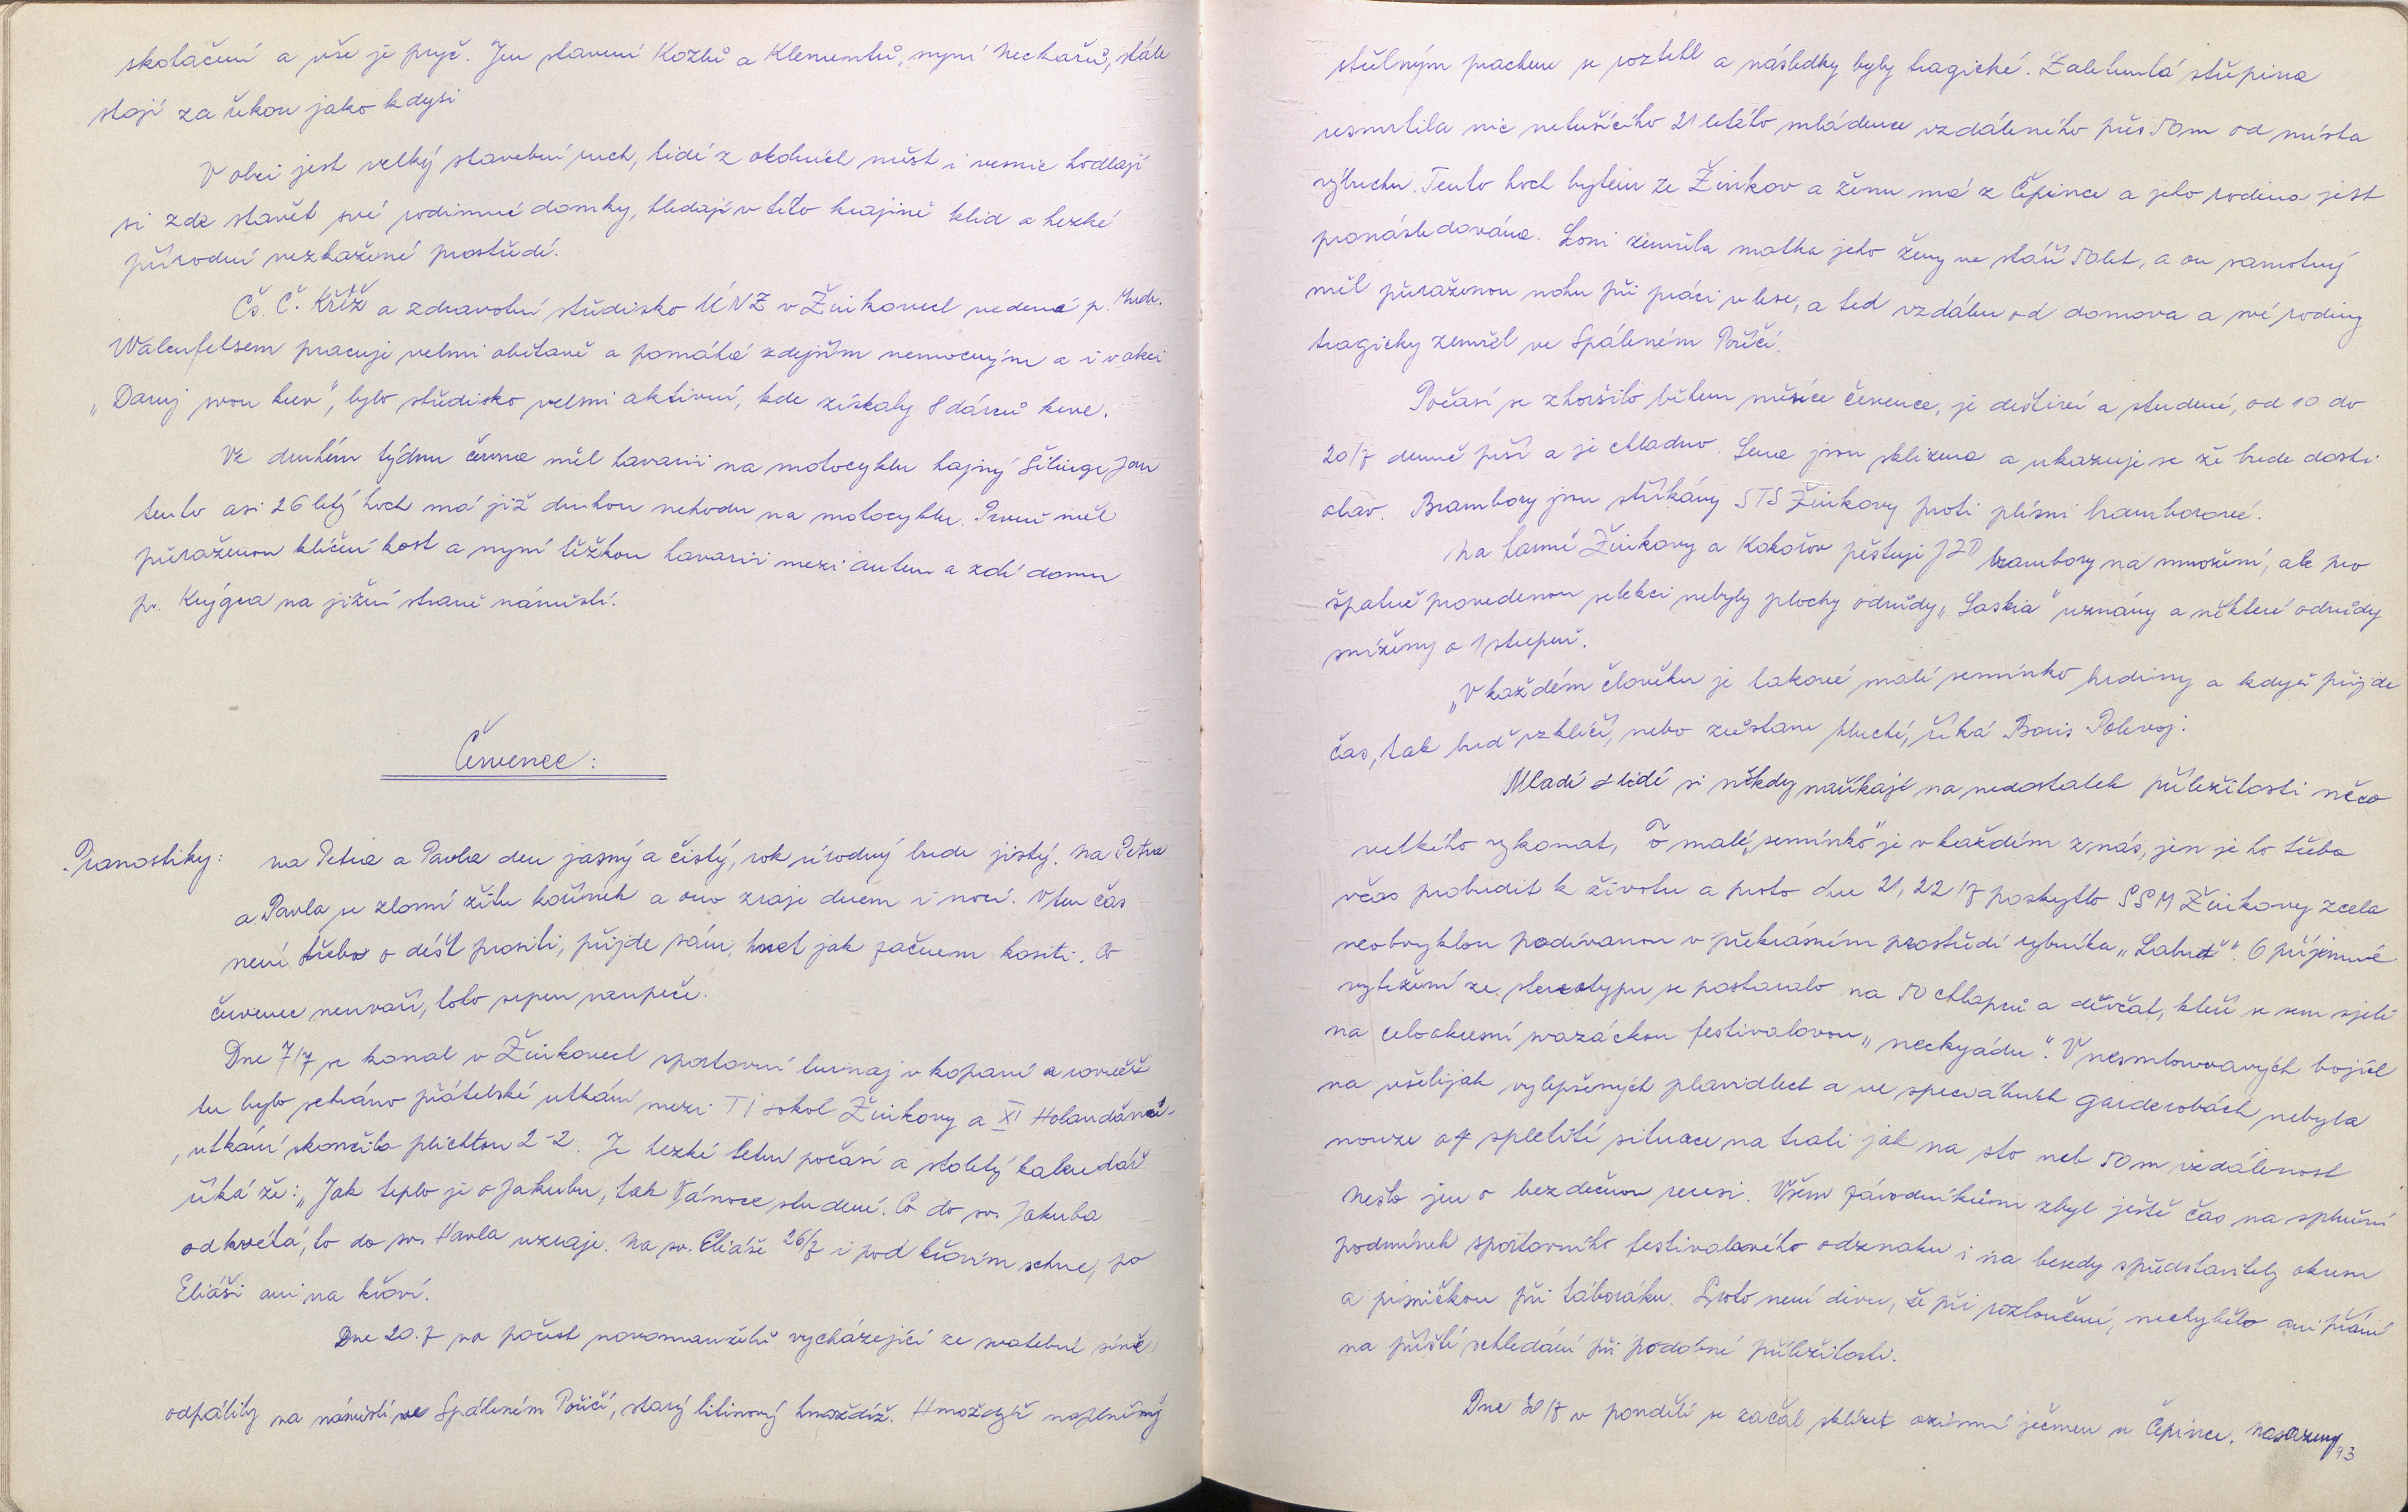 skotačení a vše je pryč. Jen stavení Kozlů a Klementů, nyní Nechařů, stále
stojí za řekou jako kdysi
V obci jest velký stavební ruch, lidé z okolních měst i vesnic hodlají
si zde stavět své rodinné domky, hledají v této krajině klid a hezké
přírodní nezkažené prostředí.
Čs. Č. Kříž a zdravotní středisko ÚNZ v Žinkovech vedené p. Mudr.
Walenfelsem pracuje velmi obětavě a pomáhá zdejším nemocným a i v akci
„Daruj svou krev", bylo středisko velmi aktivní, kde získaly 8 dárců krve.
Ve druhém týdnu června měl havarii na motocyklu hajný Šilinge Jan
tento asi 26 letý hoch má již druhou nehodu na motocyklu. Prvně měl
přeraženou klíční kost a nyní těžkou havarii mezi autem a zdí domu
p. Krýgra na jižní straně náměstí.
Červenec:
Pranostiky: na Petra a Pavla den jasný a čistý, rok úrodný bude jistý. Na Petra
a Pavla se zlomí žitu kořínek a ono zraje dnem i nocí. V ten čas
není třeba o déšť prositi, přijde sám, hned jak začnem kositi. Co
červenec neuvaří, toto srpen neupeče.
Dne 7/7 se konal v Žinkovech sportovní turnaj v kopané a rovněž
tu bylo sehráno přátelské utkání mezi TJ sokol Žinkovy a XI Holandánů-
, utkání skončilo plichtou 2-2. Je hezké letní počasí a stoletý kalendář
říká že: „Jak teplo je o Jakubu, tak Vánoce studené. Co do sv. Jakuba
odkvétá, to do sv. Havla uzraje. Na sv. Eliáše 26/7 i pod křovím schne, po
Eliáši ani na křoví.
Dne 20.7 na počest novomanželů vycházející ze svatební síně,
odpálily na náměstí ve Spáleném Poříčí, starý litinový hmoždíž. Hmoždýř naplněný
střelným prachem se roztrhl a následky byly tragické. Zalétlá střepina
usmrtila nic netušícího 21 letého mládence vzdáleného přes 50m od místa
výbuchu. Tento hoch bytem ze Žinkov a ženu má z Čepince a jeho rodina jest
pronásledována. Loni zemřela matka jeho ženy ve stáří 50 let, a on samotný
měl přeraženou nohu při práci v lese, a teď vzdálen od domova a své rodiny
tragicky zemřel ve Spáleném Poříčí.
Počasí se zhoršilo během měsíce července, je deštivé a studené, od 10 do
20/7 denně prší a je chladno. Sena jsou sklizena a ukazuje se že bude dosti
otav. Brambory jsou stříkány STS Žinkovy proti plísni bramborové.
Na farmě Žinkovy a Kokořov pěstuji JZD brambory na množení, ale pro
špatně provedenou selekci nebyly plochy odrůdy „Saskia" uznány a některé odrůdy
sníženy o 1 stupeň.
„V každém člověku je takové malé semínko hrdiny a když přijde
čas, tak buď vzklíčí, nebo zůstane hluché, říká Boris Polevoj.
Mladí lidé si někdy naříkají na nedostatek příležitosti něco
velkého vykonat, To malé „semínko" je v každém z nás, jen je ho třeba
včas probudit k životu a proto dne 21, 22/7 poskytlo SSM Žinkovy zcela
neobvyklou podívanou v překrásném prostředí rybníka „Labuť". O příjemné
vytržení ze stereotypu se postaralo na 50 chlapců a děvčat, kteří se sem sjeli
na celookresní svazáckou festivalovou „neckyádu". V nesmlouvavých bojích
na všelijak vylepšených plavidlech a ve speciálních garderobách nebyla
nouze o spletité situace na trati jak na sto neb 50m vzdálenost
Nešlo jen o bezdečnou recesi. Všem závodníkům zbyl ještě čas na splnění
podmínek sportovního festivalového odznaku i na besedy s představiteli okresu
a písničkou při táboráku. Proto není divu, že při rozloučení, nechybělo ani přání
na příští schledání při podobné příležitosti.
Dne 30/7 v pondělí se začal sklízet ozimní ječmen u Čepince. Nasazeny
93